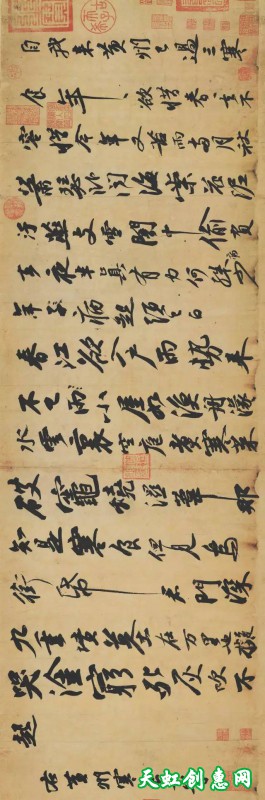 自我來黃州已過三寒
食年〻欲惜春〻去不
容惜今年又苦雨兩月秋
蕭瑟臥聞海棠花泥
汙燕支雪闇中偷負
去夜半真有力何殊少
年子病起頭已白
春江欲入戶雨勢來
不已雨小屋如漁舟濛〻
水雲裏空庖煮寒菜
破竈燒濕葦那
知是寒食但見烏
銜帋君門深
九重墳墓在萬里也擬
哭塗窮死灰吹不
起
右黃州寒
天虹创意网